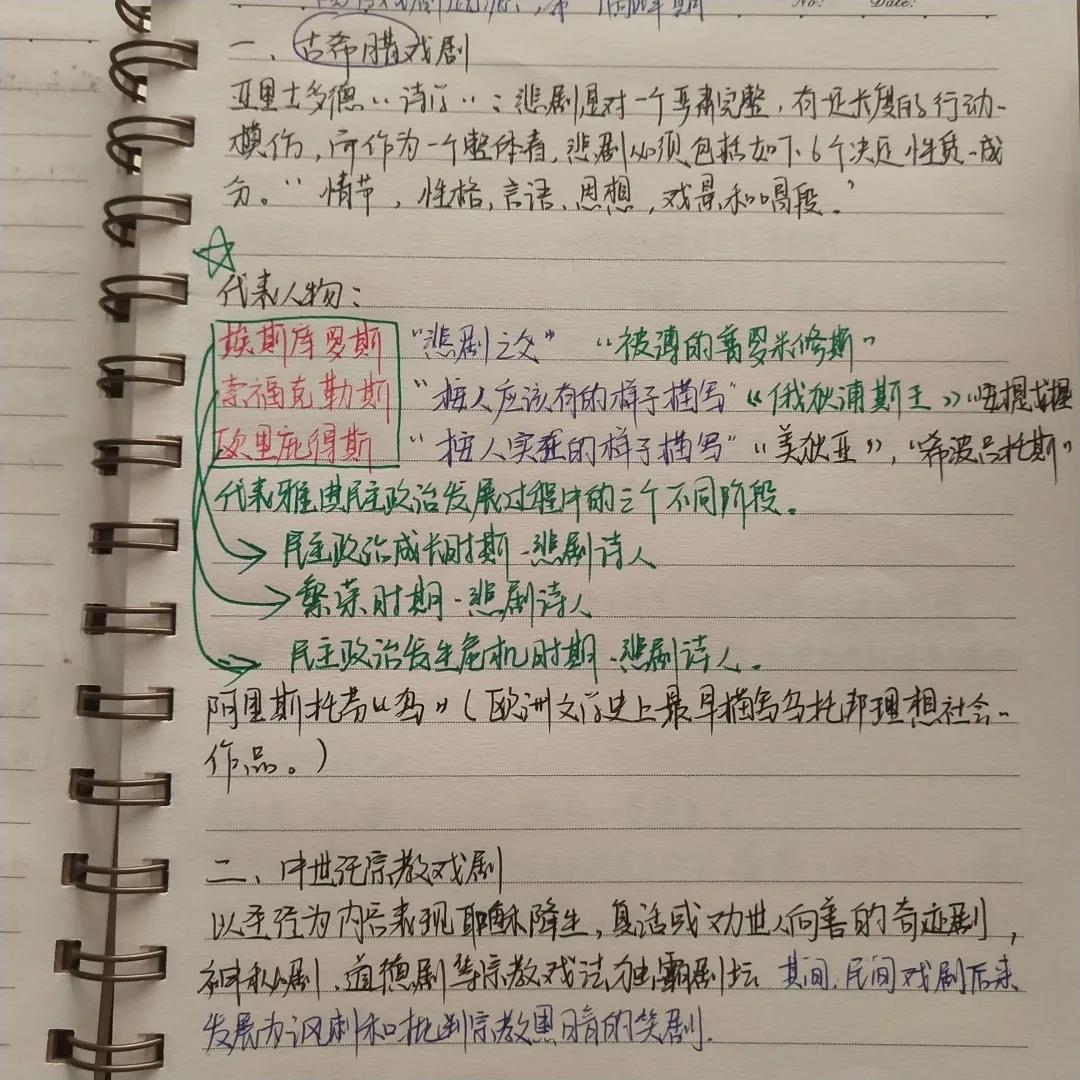 No: Date:
一、古希腊戏剧
亚里士多德“诗学”：悲剧是对一个严肃完整，有一定长度的行动
模仿，而作为一个整体者，悲剧必须包括如下6个决定性质成
分。“情节，性格，言语、思想，戏景和唱段。”
代表人物：
埃斯库罗斯 “悲剧之父” “被缚的普罗米修斯”
索福克勒斯 “按人应该有的样子描写”《俄狄浦斯王》
欧里庇得斯 “按人实在的样子描写” “美狄亚”，“希波吕托斯”
代表雅典民主政治发展过程中的三个不同阶段。
民主政治成长时期 悲剧诗人
繁荣时期 悲剧诗人
民主政治发生危机时期 悲剧诗人。
阿里斯托芬“鸟”（欧洲文学史上最早描写乌托邦理想社会
作品。）
二、中世纪宗教戏剧
以圣经为内容表现耶稣降生，复活或劝世人向善的奇迹剧，
神秘剧、道德剧等宗教戏 独霸剧坛 其间，民间戏剧后来
发展为讽刺和批判宗教黑暗的笑剧.